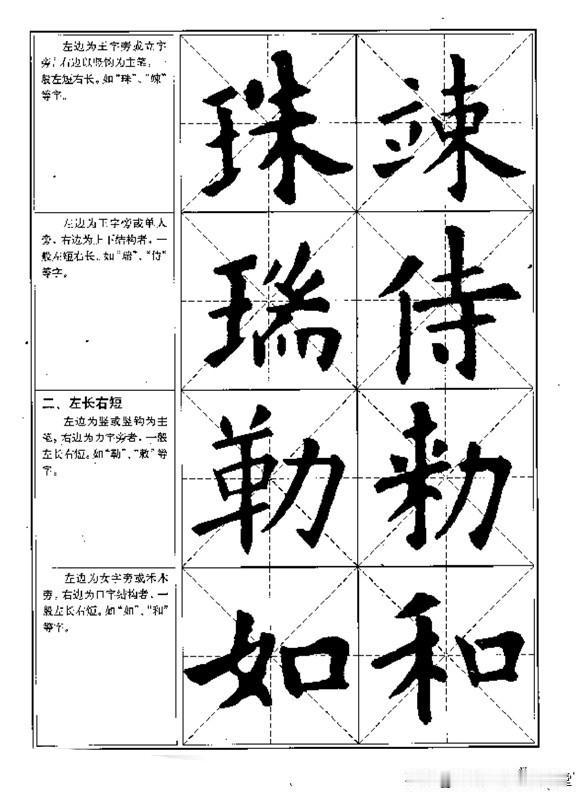 左边为王字旁或立字
旁,右边以竖钩为主笔,一
般左短右长。如“珠”、“竦”
等字。
珠 竦
左边为王字旁或单人
旁,右边为上下结构者,一
般左短右长。如“瑞”、“侍”
等字。
瑞 侍
二、左长右短
左边为竖或竖钩为主
笔,右边为力字旁者,一般
左长右短。如“勒”、“敕”等
字。
勒 勑
左边为女字旁或禾木
旁,右边为口字结构者,一
般左长右短。如“如”、“和”
等字。
如 和